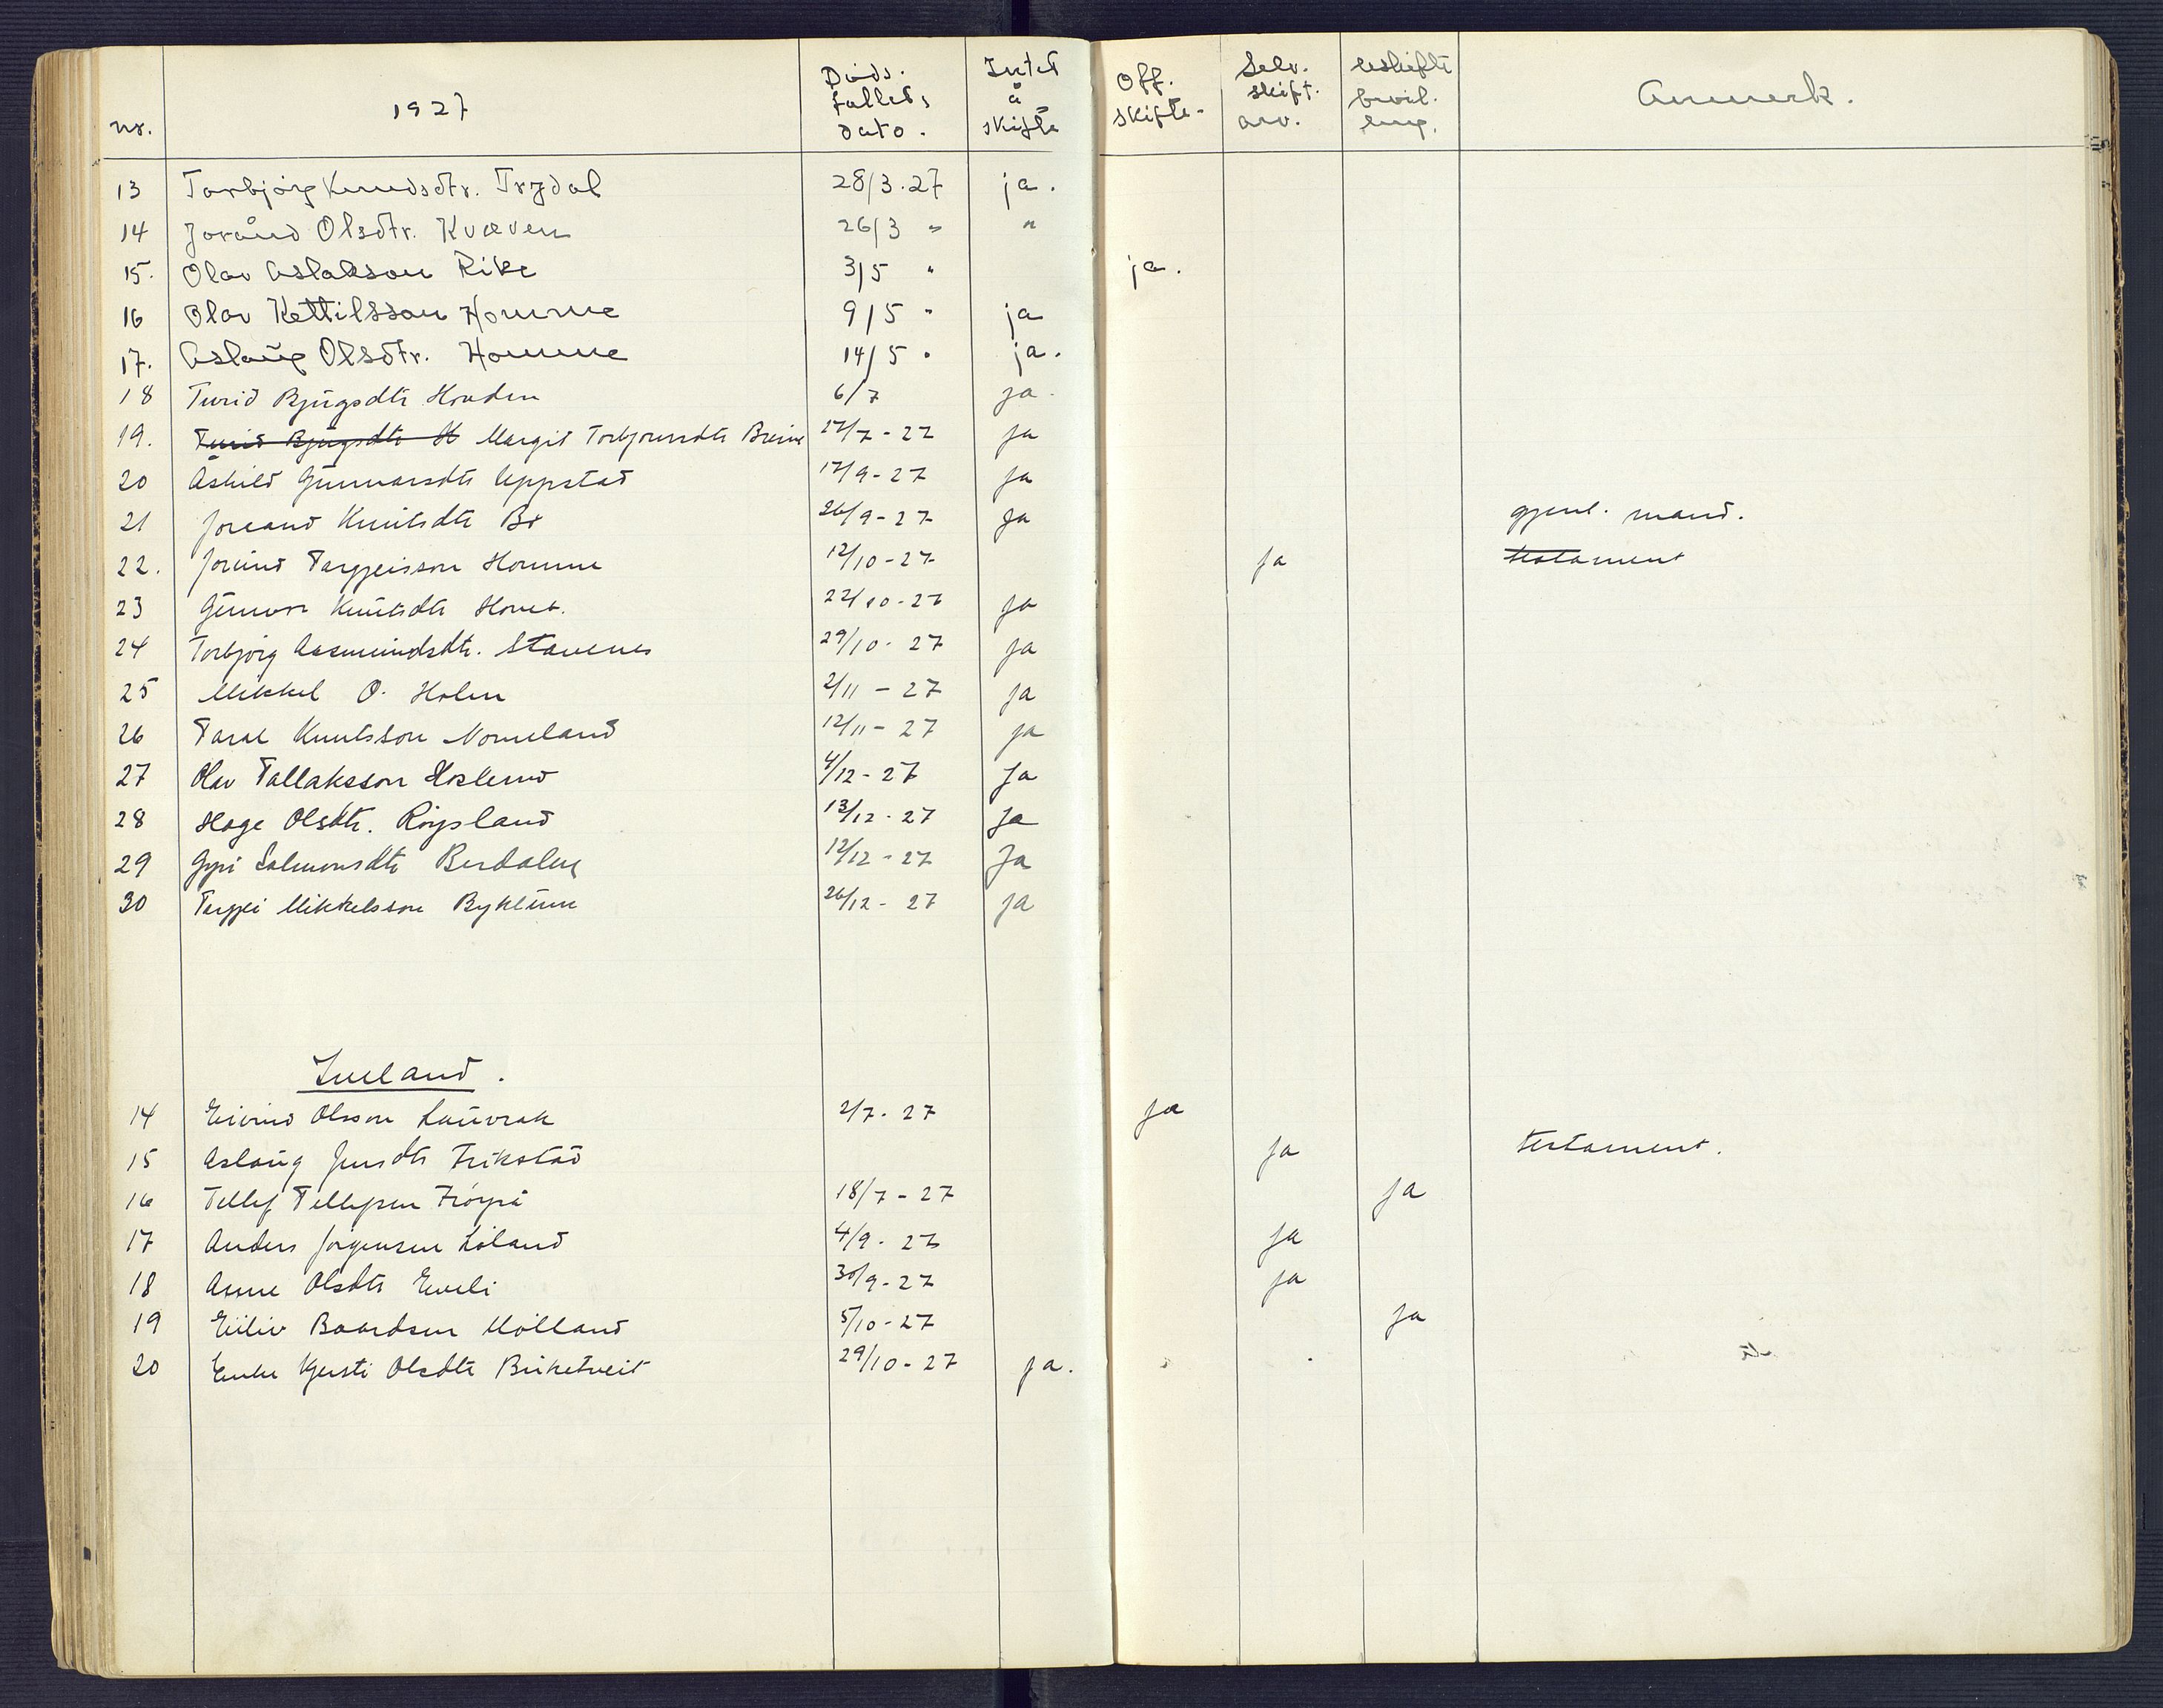 nr. 1927 Döds. fallets dato. Intet å skifte Off. skifte. Selv. skift. arv. Uskifte bevil. ling. Anmerk.
13 Torbjörg Knudsdtr. Trydal 28/3.27 ja.
14 Joränd Olsdtr. Kvæven 26/3 " "
15. Olav Aslakson Rike 3/5 " ja.
16 Olav Kettilsson Homme 9/5 " ja
17. Aslaug Olsdtr. Homme 14/5 " ja.
18 Turid Bjugsdtr Hovden 6/7 ja.
19. Turid Bjugsdtr H Margit Torbjørnsdtr 27/7-27 ja
20 Åshild Gunnarsdtr Uppstad 17/9-27 ja
21 Joreand Knutsdtr 26/9-27 ja gjenl. mand.
22. Jorund Targjeisson Homme 12/10-27 ja testament
23 Gunvor Knutsdtr 22/10-27 ja
24 Torbjörg Aasmundsdtr. Stavenes 29/10-27 ja
25 Mikkel O. Holen 2/11-27 ja
26 Taral Knutsson Nomeland 12/11-27 ja
27 Olav Tallaksson 4/12-27 Ja
28 Hage Olsdtr. Röysland 13/12-27 Ja
29 Gyri Salmonsdtr Berdalen 12/12-27 Ja
30 Targjei Mikkelsson Byklum 26/12-27 ja
Iveland.
14 Eivind Olsson Lauvrak 2/7-27 ja
15 Aslaug Jensdtr Frikstad ja testament.
16 Tellef Tellefsen Fröyså 18/7-27 ja
17 Anders Jörgensen Löland 4/9-27 ja
18 Anne Olsdtr Eveli 30/9-27 ja
19 Eiliv Baardsen Mölland 5/10-27 ja
20 Kjersti Olsdtr Birketveit 29/10-27 ja.